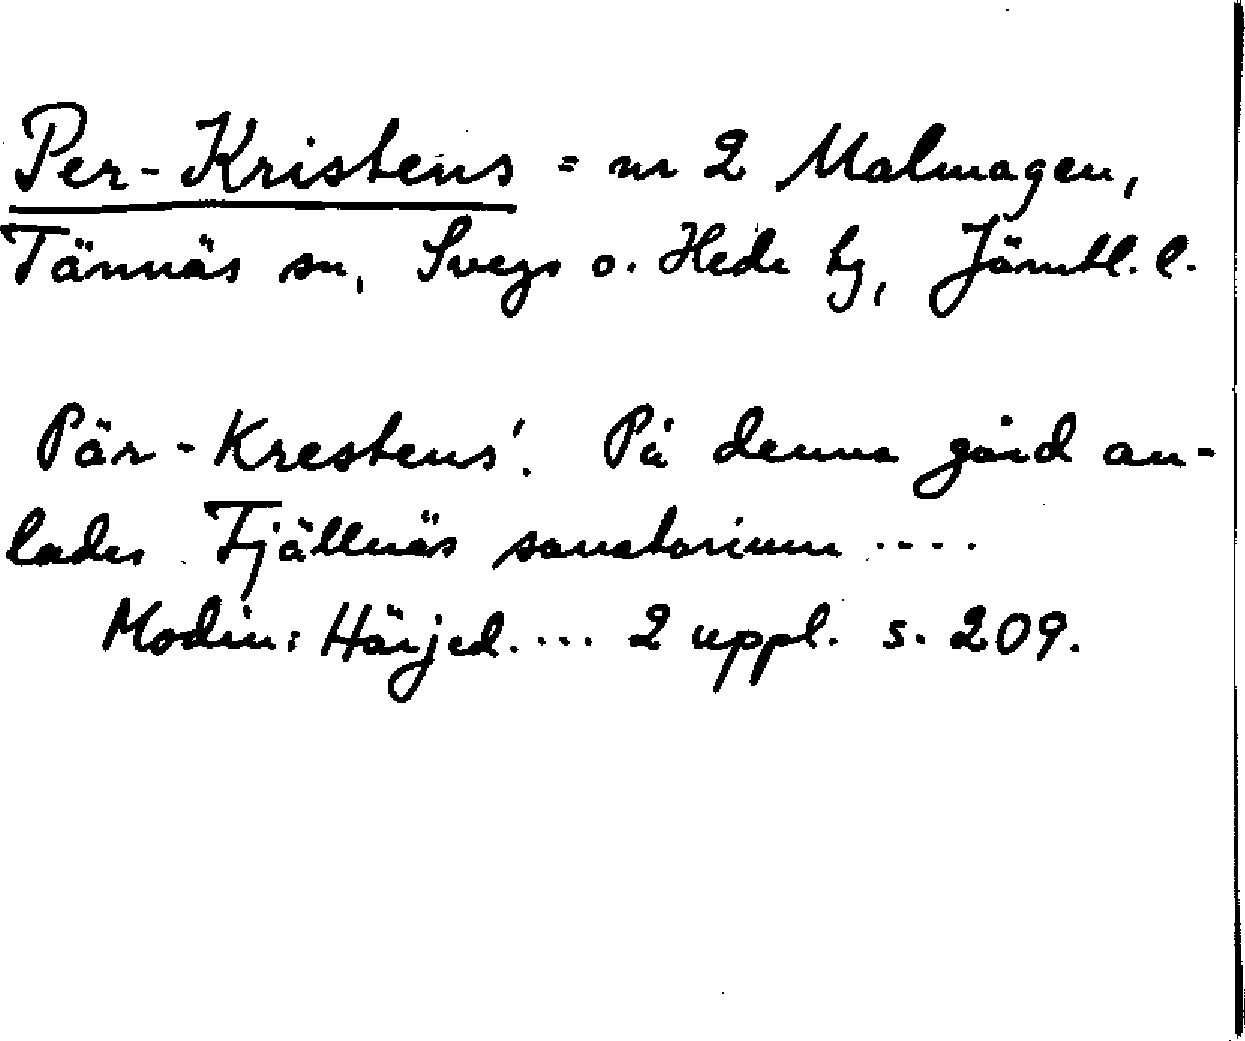 Per-Kristens = nr 2 Malmagen,
Tännäs sn, Svegs o. Hede tg, Jämtl. l.
Pär-Krestens'. På denna gård an-
lades Fjällnäs sanatorium ....
Modin: Härjed. ... 2 uppl. s. 209.